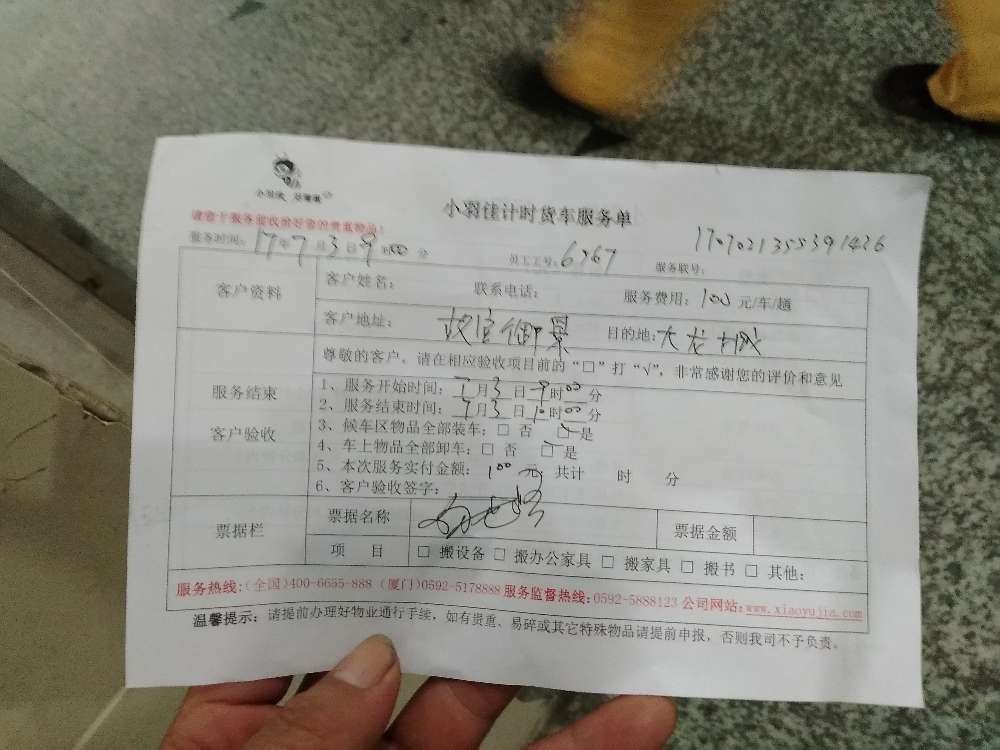 小羽佳计时货车服务单
服务时间：17年7月3日9时00分 员工工号：6767 服务联号：1707021355391426
客户资料
客户姓名： 联系电话： 服务费用：100元/车/趟
客户地址： 御景 目的地：大龙
尊敬的客户，请在相应验收项目前的“□”打“√”，非常感谢您的评价和意见
服务结束
客户验收
1、服务开始时间：7月3日9时00分
2、服务结束时间：7月3日10时00分
3、候车区物品全部装车：□ 否 □是
4、车上物品全部卸车：□ 否 □是
5、本次服务实付金额：100元 共计 时 分
6、客户验收签字：
票据栏
票据名称 票据金额
项 目 □ 搬设备 □ 搬办公家具 □ 搬家具 □ 搬书 □ 其他：
服务热线：(全国)400-6655-888 (厦门)0592-5178888 服务监督热线：0592-5888123 公司网站：www.xiaoyujia.com
温馨提示：请提前办理好物业通行手续，如有贵重、易碎或其它特殊物品请提前申报，否则我司不予负责。